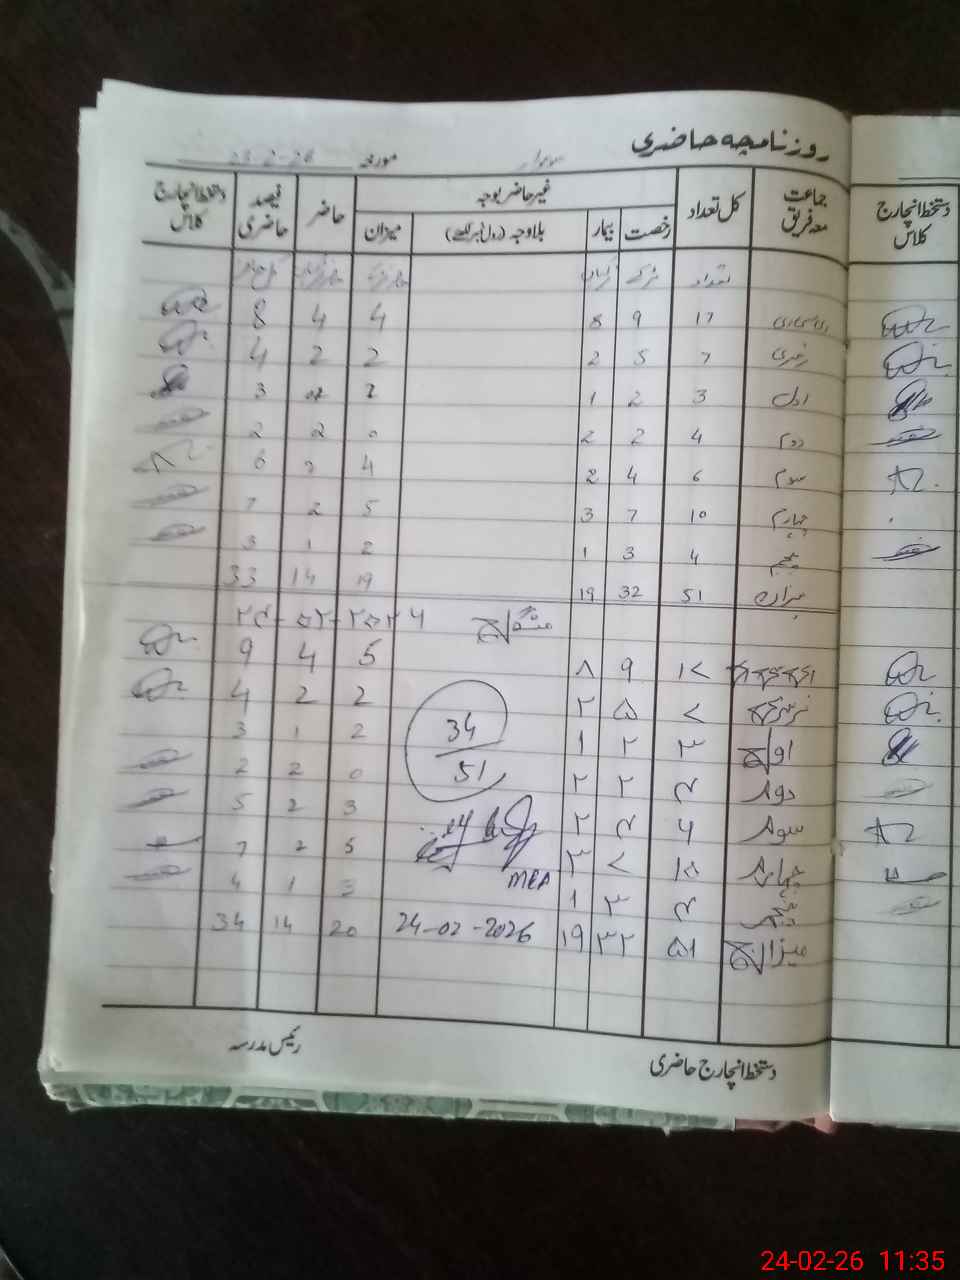 روزنامچہ حاضری
سوموار مورخہ 23-2-26
جماعت معہ فریق کل تعداد غیر حاضر بوجہ حاضر فیصد حاضری دستخط انچارج کلاس دستخط انچارج کلاس
رخصت بیمار بلاوجہ (رول نمبر لکھے) میزان
تعداد
17 9 8 4 4 8
نرسری 7 5 2 2 2 4
اول 3 2 1 2 02 3
دوم 4 2 2 0 2 2
سوم 6 4 2 4 2 6
چہارم 10 7 3 5 2 7
پنجم 4 3 1 2 1 3
میزان 51 32 19 19 14 33
منگل ۲۴-۰۲-۲۰۲۶
۱۷ ۹ ۸ 5 4 9
نرسری ۷ ۵ ۲ 2 2 4
اول ۳ ۲ ۱ 2 1 3
دوم ۴ ۲ ۲ 0 2 2
34
51
سوم ۶ ۴ ۲ 3 2 5
چہارم ۱۰ ۷ ۳ 5 2 7
MEA
پنجم ۴ ۳ ۱ 3 1 4
میزان ۵۱ ۳۲ ۱۹ 24-02-2026 20 14 34
دستخط انچارج حاضری رئیس مدرسہ
24-02-26 11:35